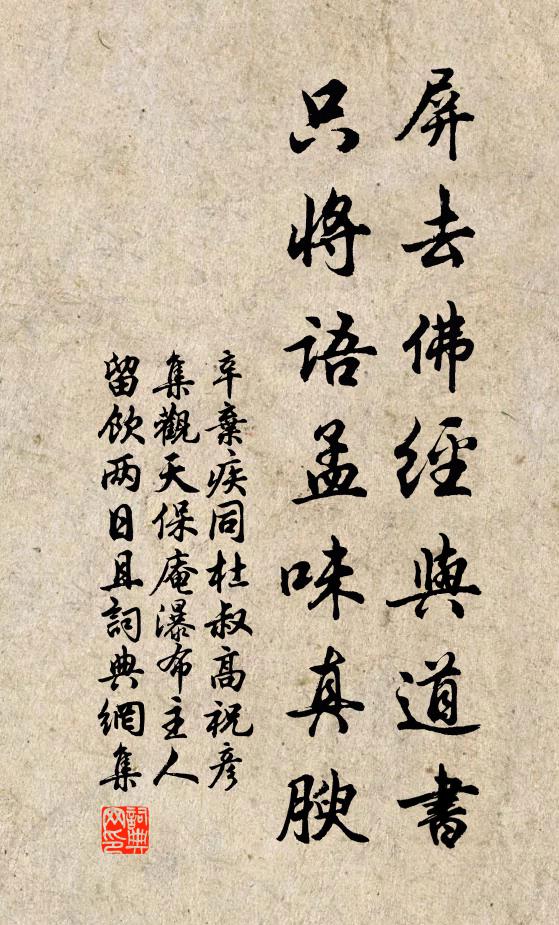 屏去佛經與道書
只將語孟味真腴
辛棄疾同杜叔高祝彥
集觀天保庵瀑布主人
留飲两日且詞典網集
詞典网印